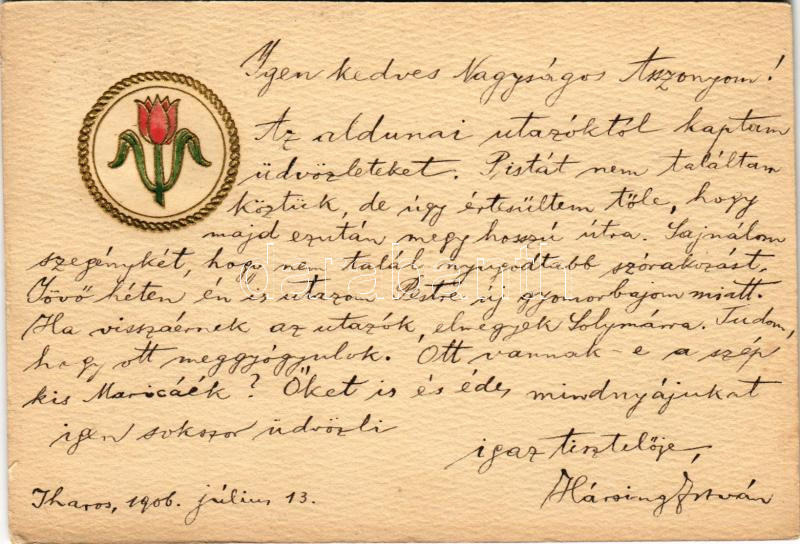 Igen kedves Nagyságos Asszonyom!
Az aldunai utazóktól kaptam
üdvözleteket. Pistát nem találtam
köztük, de úgy értesültem tőle, hogy
majd ezután megy hosszú útra. Sajnálom
szegénykét, hogy nem talál nyugodtabb szórakozást.
Jövő héten én is utazom Pestre, új gyomorbajom miatt.
Ha visszaérnek az utazók, elmegyek Solymárra. Tudom,
hogy ott meggyógyulok. Ott vannak-e a szép
kis Maricáék? Őket is és édes mindnyájukat
igen sokszor üdvözli
igaz tisztelője,
Iharos, 1906. július 13. Hársing István
darabanth.com